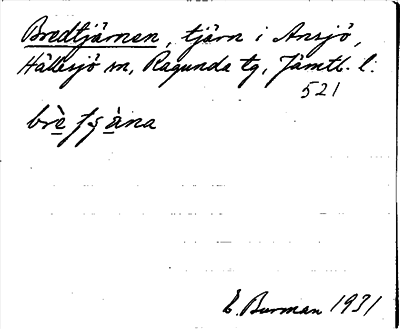 Bredtjärnen, tjärn i Ansjö,
Hällesjö sn, Ragunda tg, Jämtl. l.
521
E. Burman 1931